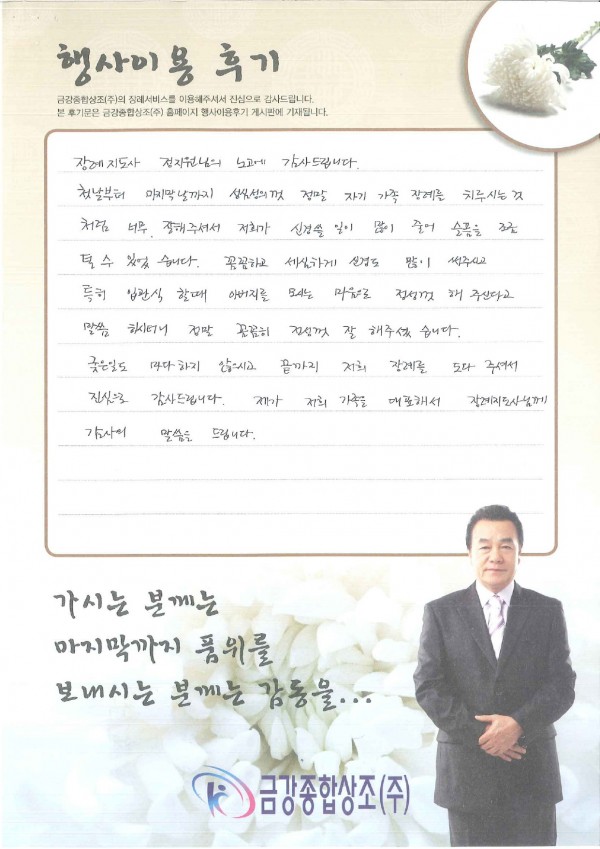 행사이용 후기
금강종합상조(주)의 장례서비스를 이용해주셔서 진심으로 감사드립니다.
본 후기문은 금강종합상조(주) 홈페이지 행사이용후기 게시판에 기재됩니다.
장례지도사 정지원님의 노고에 감사드립니다.
첫날부터 마지막날까지 성심성의껏 정말 자기 가족 장례를 치루시는것
처럼 너무 잘해주셔서 저희가 신경쓸 일이 많이 줄어 슬픔을
덜 수 있었습니다. 꼼꼼하고 세심하게 신경도 많이 써주시고
특히 입관식 할때 아버지를 모시는 마음으로 정성껏 해 주신다고
말씀 하시더니 정말 꼼꼼히 정성껏 잘 해주셨습니다.
궂은일도 마다하지 않으시고 끝까지 저희 장례를 도와 주셔서
진심으로 감사드립니다. 제가 저희 가족을 대표해서 장례지도사님께
감사의 말씀을 드립니다.
가시는 분께는
마지막까지 품위를
보내시는 분께는 감동을...
금강종합상조(주)